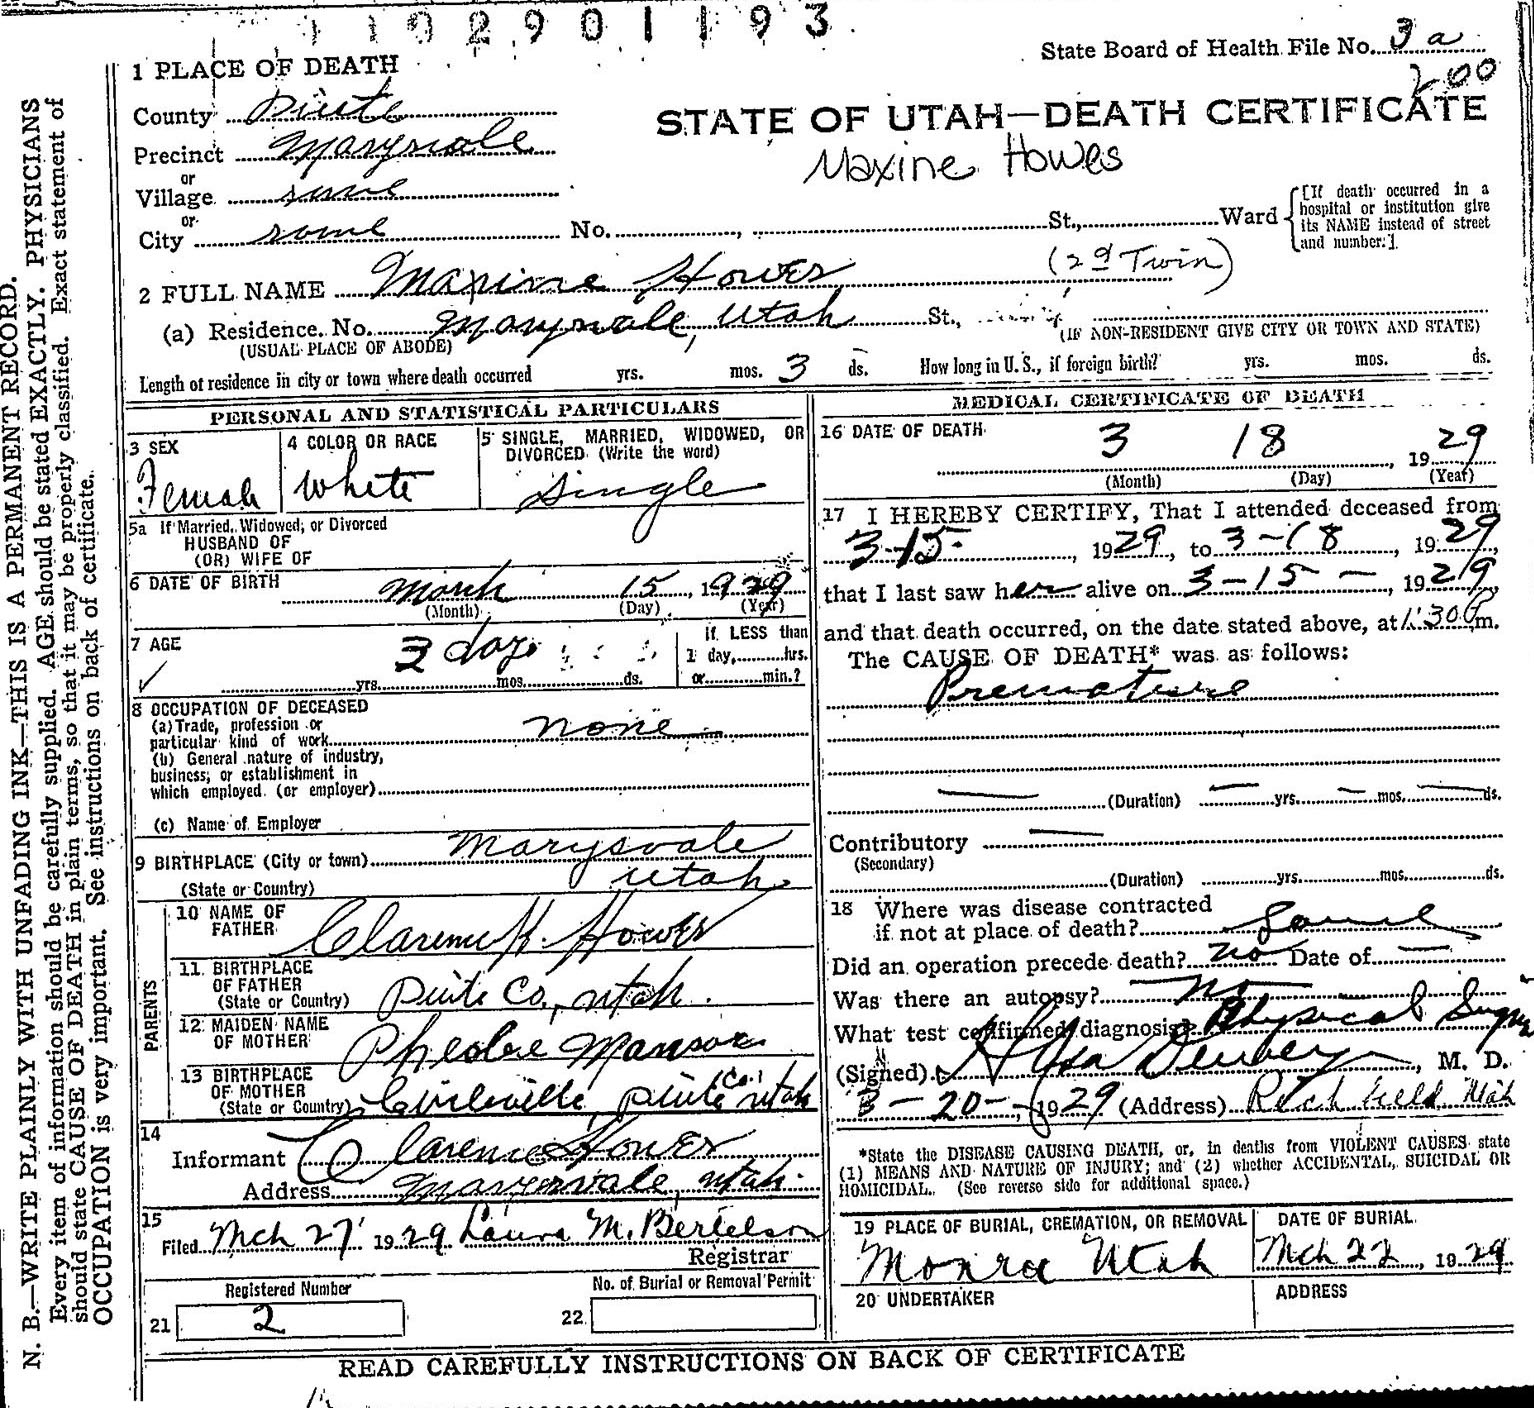 1102901193
State Board of Health File No. 3 a
200
1 PLACE OF DEATH
County Piute
STATE OF UTAH—DEATH CERTIFICATE
Precinct Marysvale
Maxine Howes
or
Village same
or
City same No. , St., Ward
[If death occurred in a
hospital or institution give
its NAME instead of street
and number.]
2 FULL NAME Maxine Howes (2d Twin)
(a) Residence. No. Marysvale, Utah St.,
(USUAL PLACE OF ABODE) (IF NON-RESIDENT GIVE CITY OR TOWN AND STATE)
Length of residence in city or town where death occurred yrs. mos. 3 ds. How long in U. S., if foreign birth? yrs. mos. ds.
PERSONAL AND STATISTICAL PARTICULARS
3 SEX
Female
4 COLOR OR RACE
White
5 SINGLE, MARRIED, WIDOWED, OR
DIVORCED (Write the word)
Single
5a If Married, Widowed, or Divorced
HUSBAND OF
(OR) WIFE OF
6 DATE OF BIRTH March 15, 1929
(Month) (Day) (Year)
7 AGE 3 days
yrs. mos. ds.
if LESS than
1 day, hrs.
or min.?
8 OCCUPATION OF DECEASED
(a) Trade, profession or
particular kind of work none
(b) General nature of industry,
business, or establishment in
which employed (or employer)
(c) Name of Employer
9 BIRTHPLACE (City or town) Marysvale
(State or Country) Utah
PARENTS
10 NAME OF
FATHER Clarence K. Howes
11 BIRTHPLACE
OF FATHER
(State or Country) Piute Co., Utah.
12 MAIDEN NAME
OF MOTHER Pheobe Mansor
13 BIRTHPLACE
OF MOTHER
(State or Country) Circleville, Piute Co., Utah
14
Informant Clarence Howes
Address Marysvale, Utah.
15
Filed Mch 27 1929 Laura M. Bertelson
Registrar
Registered Number
21 2
No. of Burial or Removal Permit
22
MEDICAL CERTIFICATE OF DEATH
16 DATE OF DEATH 3 18, 1929
(Month) (Day) (Year)
17 I HEREBY CERTIFY, That I attended deceased from
3-15-, 1929, to 3-18, 1929,
that I last saw her alive on 3-15-, 1929,
and that death occurred, on the date stated above, at 1:30 P m.
The CAUSE OF DEATH* was as follows:
Premature
(Duration) yrs. mos. ds.
Contributory
(Secondary)
(Duration) yrs. mos. ds.
18 Where was disease contracted
if not at place of death? Same
Did an operation precede death? no Date of
Was there an autopsy? No
What test confirmed diagnosis? Physical Signs
(Signed), M. D.
3-20-, 1929 (Address) Richfield Utah
*State the DISEASE CAUSING DEATH, or, in deaths from VIOLENT CAUSES state
(1) MEANS AND NATURE OF INJURY; and (2) whether ACCIDENTAL, SUICIDAL OR
HOMICIDAL. (See reverse side for additional space.)
19 PLACE OF BURIAL, CREMATION, OR REMOVAL
Monroe Utah
DATE OF BURIAL
Mch 22, 1929
20 UNDERTAKER
ADDRESS
READ CAREFULLY INSTRUCTIONS ON BACK OF CERTIFICATE
N. B.—WRITE PLAINLY WITH UNFADING INK—THIS IS A PERMANENT RECORD.
Every item of information should be carefully supplied. AGE should be stated EXACTLY. PHYSICIANS
should state CAUSE OF DEATH in plain terms, so that it may be properly classified. Exact statement of
OCCUPATION is very important. See instructions on back of certificate.